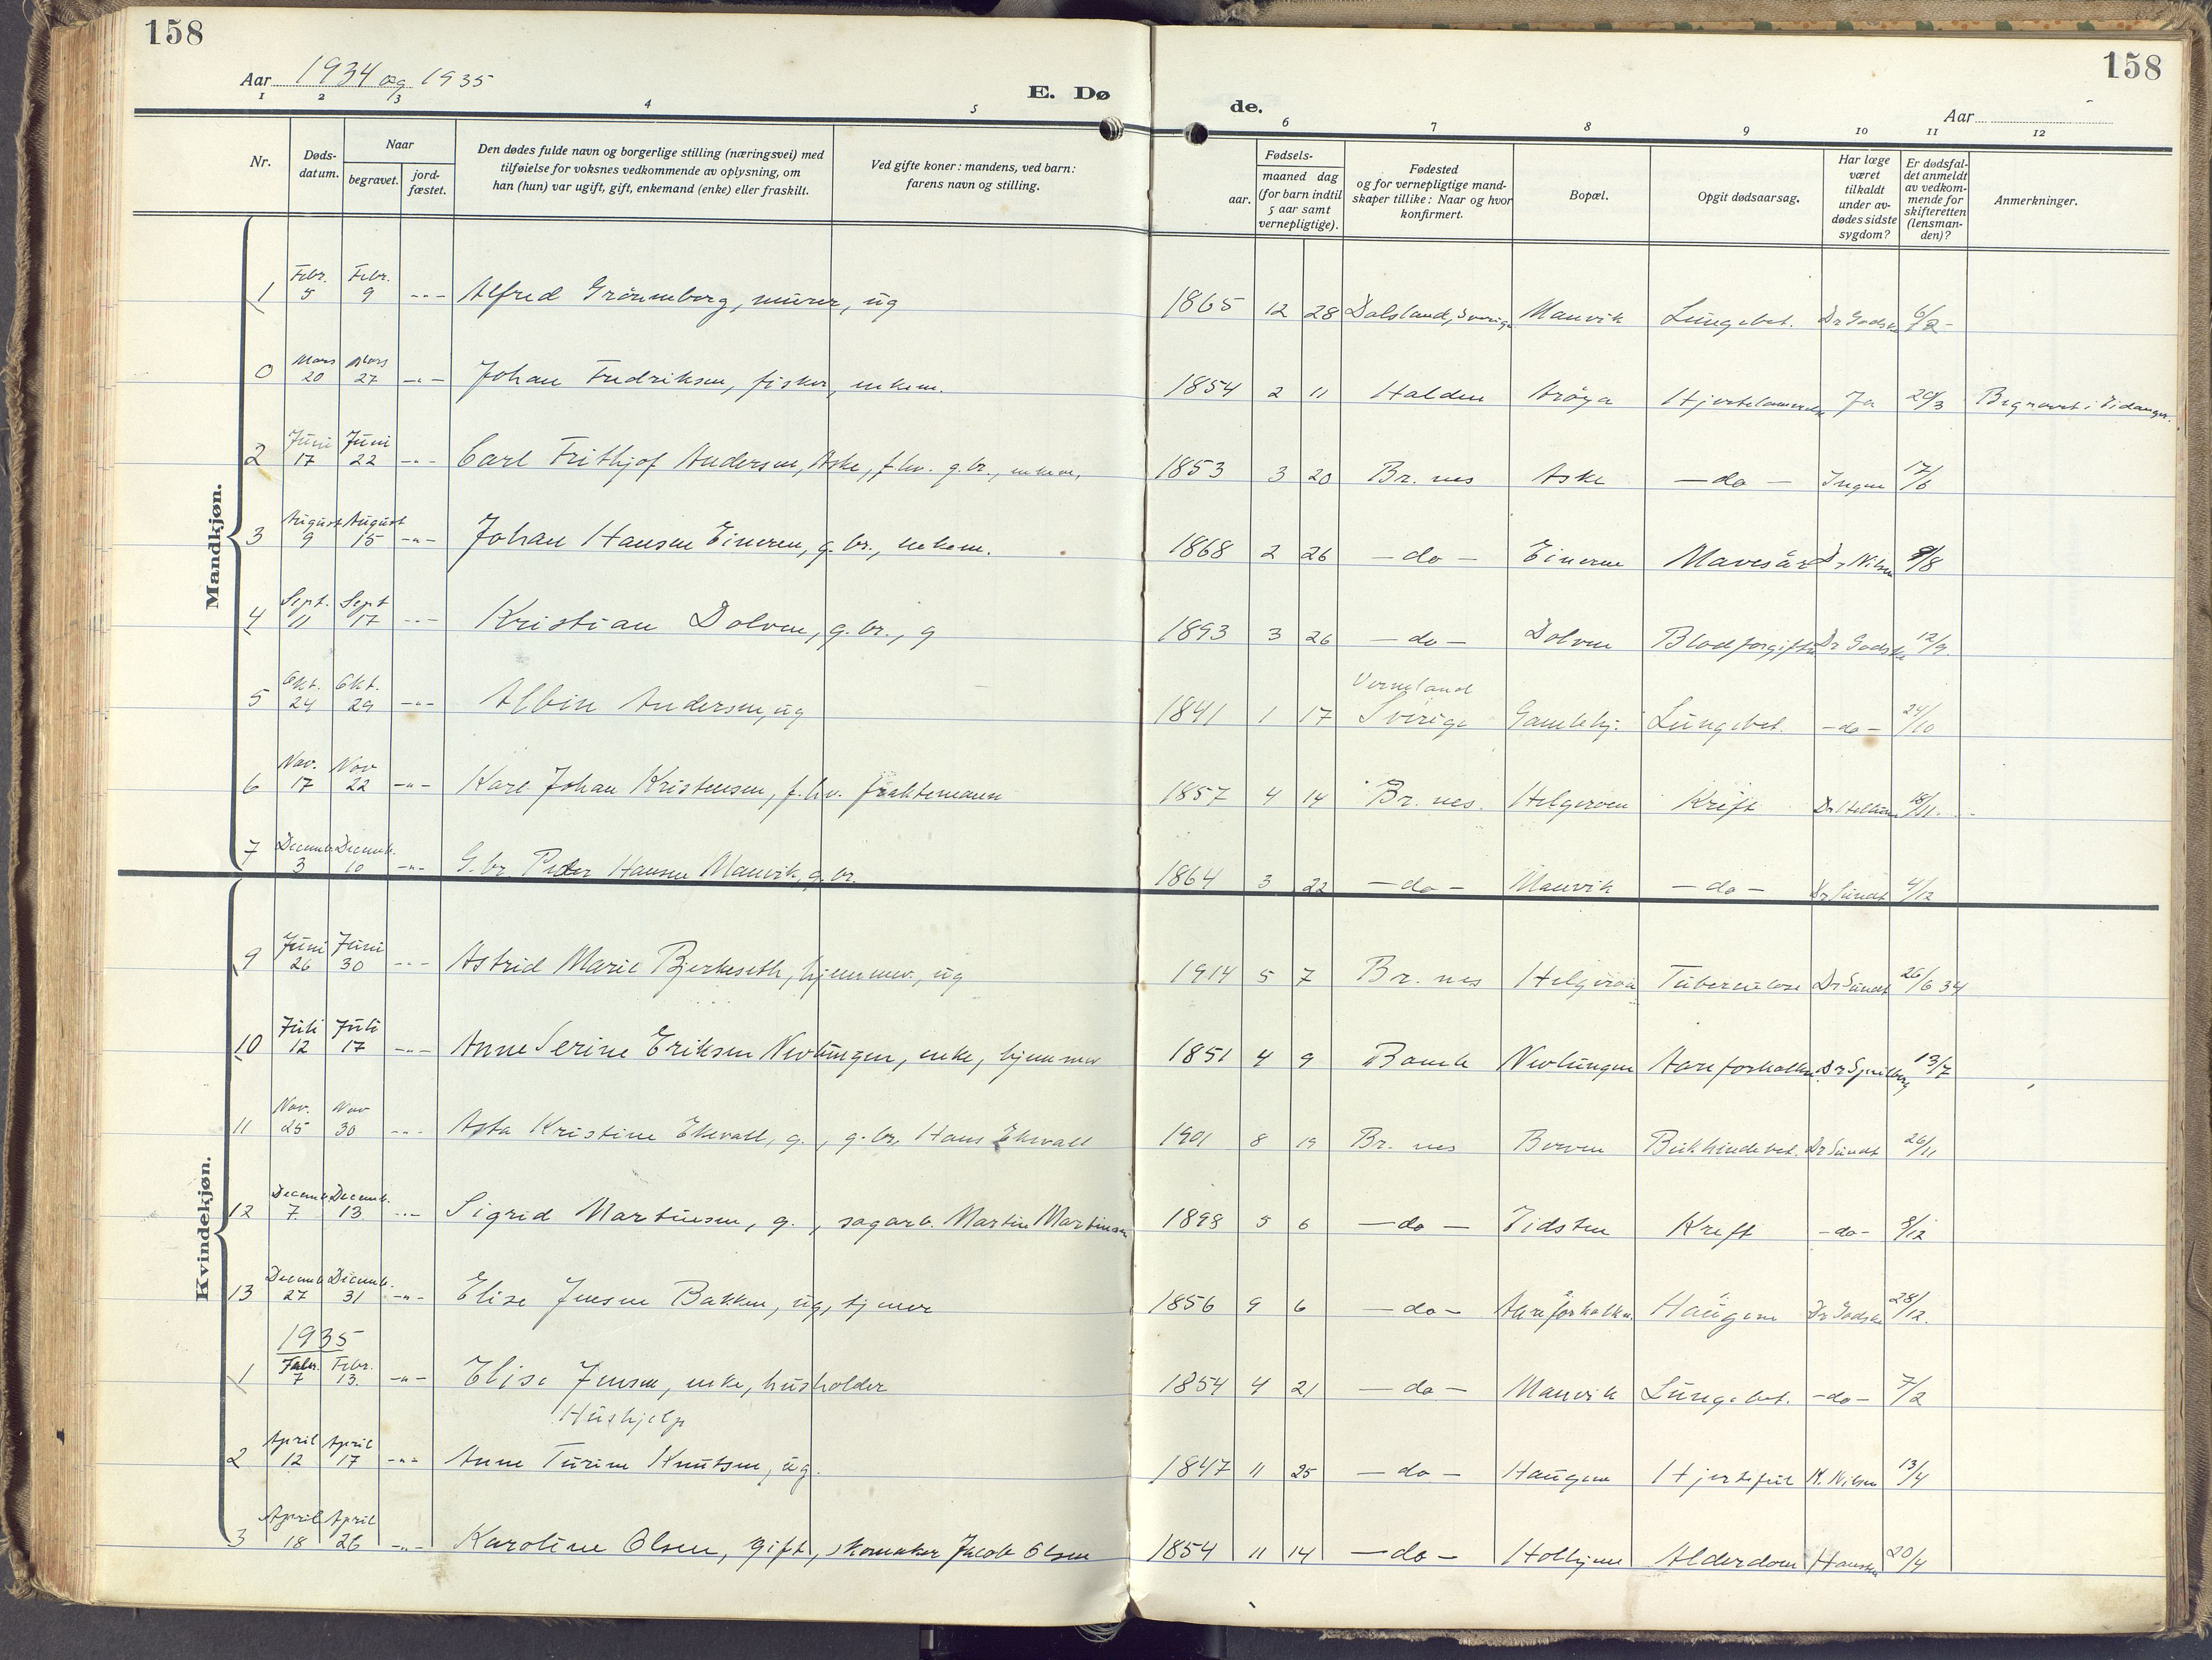 158
158
Aar 1934 og 1935
E. Dø
de.
Aar
1 2 3 4 5 6 7 8 9 10 11 12
Nr.
Døds-datum.
Naar
begravet.
jord-fæstet.
Den dødes fulde navn og borgerlige stilling (næringsvei) med
tilføielse for voksnes vedkommende av oplysning, om
han (hun) var ugift, gift, enkemand (enke) eller fraskilt.
Ved gifte koner: mandens, ved barn:
farens navn og stilling.
Fødsels-
aar.
maaned dag
(for barn indtil
5 aar samt
vernepligtige).
Fødested
og for vernepligtige mand-
skaper tillike: Naar og hvor
konfirmert.
Bopæl.
Opgit dødsaarsag.
Har læge
været
tilkaldt
under av-
dødes sidste
sygdom?
Er dødsfal-
det anmeldt
av vedkom-
mende for
skifteretten
(lensman-
den)?
Anmerkninger.
Mandkjøn.
1 Febr. 5 Febr. 9 -"- Alfred Grönneberg, murer, ug 1865 12 28 Dalsland, Sverige Manvik Lungebet. Dr Godske 6/2
0 Mars 20 Mars 27 -"- Johan Fredriksen, fisker, enkem. 1854 2 11 Halden Arøya Hjertelammelse Ja 20/3 Begravet i Eidanger.
2 Juni 17 Juni 22 -"- Carl Frithjof Andersen, Aske, f.hv. g.br., enkem. 1853 3 20 Br. nes Aske -do- Ingen 17/6
3 August 9 August 15 -"- Johan Hansen Eineren, g.br., enkem. 1868 2 26 -do- Eineren Mavesår Dr Nilsen 9/8
4 Sept. 11 Sept 17 -"- Kristian Dolven, g.br., g 1893 3 26 -do- Dolven Blodforgiftn Dr Godske 12/9.
5 Okt. 24 Okt. 29 -"- Albin Andersen, ug 1841 1 17 Vermeland Sverige Gamlehj. Lungebet. -do- 24/10
6 Nov. 17 Nov 22 -"- Karl Johan Kristensen, f.hv. fraktemann 1857 4 14 Br. nes. Helgeroen Kreft 18/11.
7 Decemb. 3 Decemb. 10 -"- G.br Peder Hansen Manvik, g.br. 1864 3 22 -do- Manvik -do- Dr Sundt 4/12
Kvindekjøn.
9 Juni 26 Juni 30 -"- Astrid Marie Bjerkeseth, hjemmev., ug 1914 5 7 Br. nes Helgeroa Tuberculose Dr Sundt 26/6 34
10 Juli 12 Juli 17 -"- Anne Serine Eriksen Nevlungen, enke, hjemmev 1851 4 9 Bamle Nevlungen Aareforkalkn. 13/7
11 Nov. 25 Nov 30 -"- Asta Kristine Ekevall, g., g.br, Hans Ekevall 1901 8 19 Br. nes Berven Bukhindebet. Dr Sundt 26/11
12 Decemb. 7 Decemb. 13 -"- Sigrid Martinsen, g., sagarb. Martin Martinsen 1898 5 6 -do- Tidsten Kreft -do- 8/12
13 Decemb 27 Decemb. 31 -"- Elise Jensen Bakken, ug, hjemev 1856 9 6 -do- Aareforkalkn. Haugene Dr Godske 28/12.
1935
1 Febr. 7 Febr. 13. -"- Elise Jensen, enke, husholder 1854 4 21 -do- Manvik Lungebet. -do- 7/2
Hushjelp
2 April 12 April 17 -"- Anne Turine Knutsen, ug. 1847 11 25 -do- Haugene Hjertefeil K. Nilsen 13/4
3 April 18 April 26 -"- Karoline Olsen, gift, skomaker Jacob Olsen 1854 11 14 -do- Holhjem Alderdom Hansen 20/4